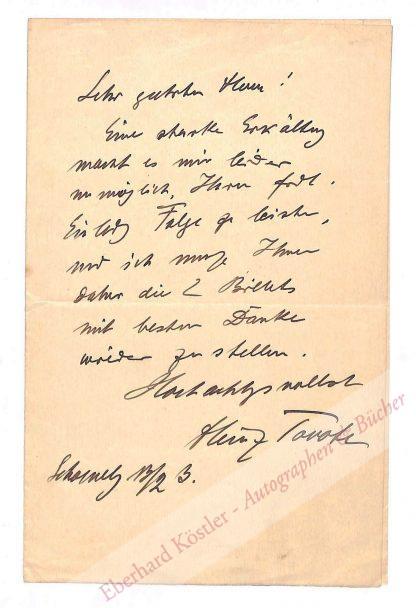 Sehr geehrter Herr!
Eine starke Erkältg
macht es mir leider
unmöglich, Ihrer frdl.
Einladg Folge zu leisten,
und ich muss Ihnen
daher die 2 Billets
mit bestem Danke
wieder zu stellen.
Hochachtgsvollst
Heinz Tovote
13/2 3.
Eberhard Köstler - Autographen & Bücher